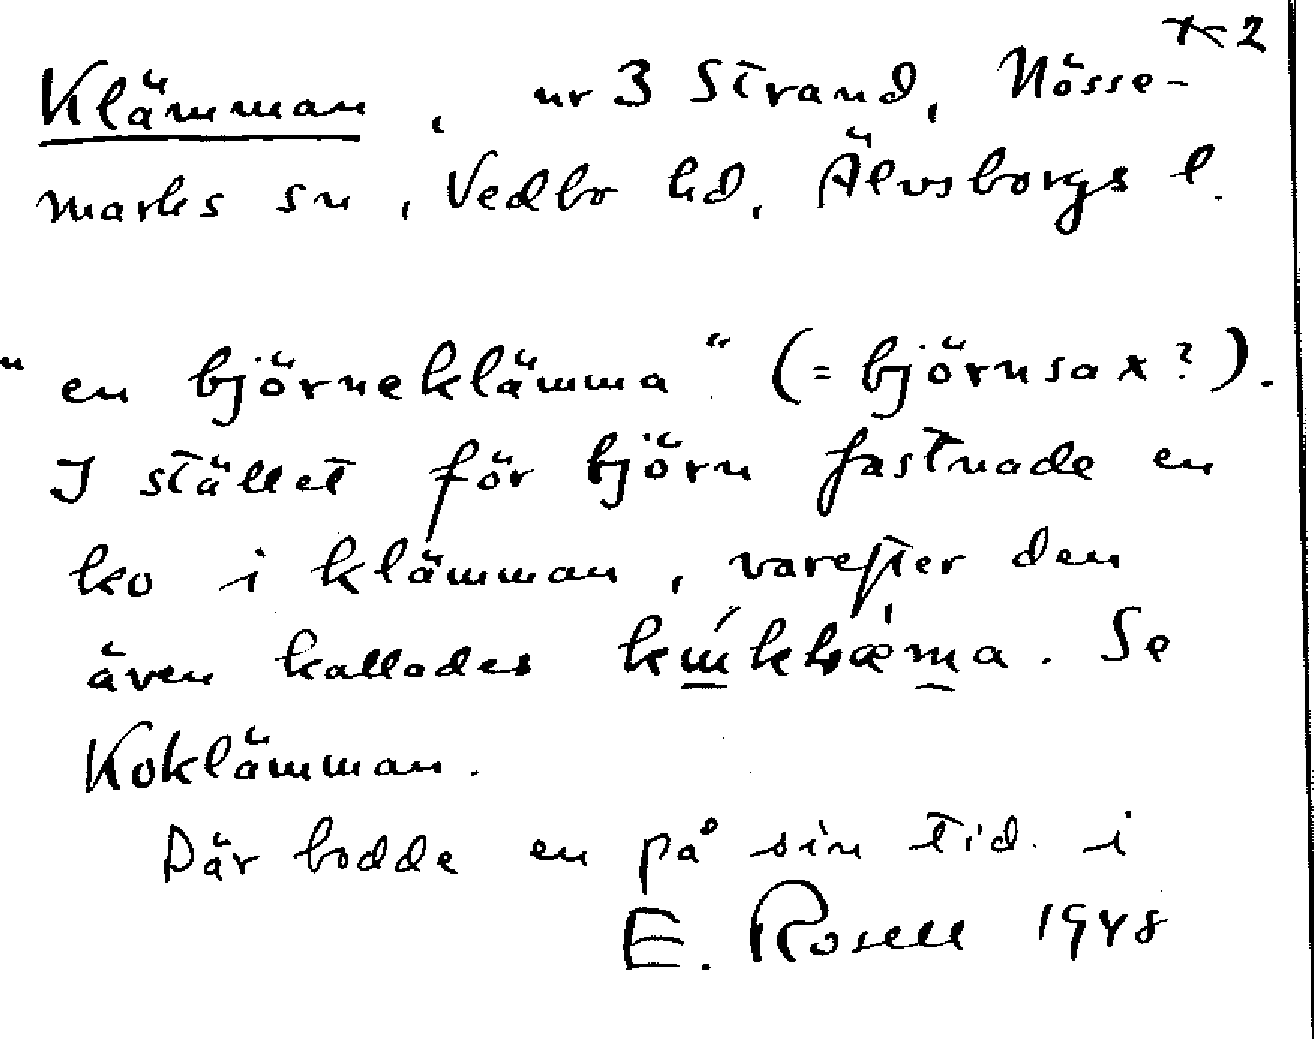 K2
Klämman, nr 3 Strand, Nösse-
marks sn, Vedbo hd, Älvsborgs l.
"en björneklämma" (= björnsax?).
I stället för björn fastnade en
ko i klämman, varefter den
även kallades . Se
Koklämman.
Där bodde en på sin tid i
E. Rosell 1948